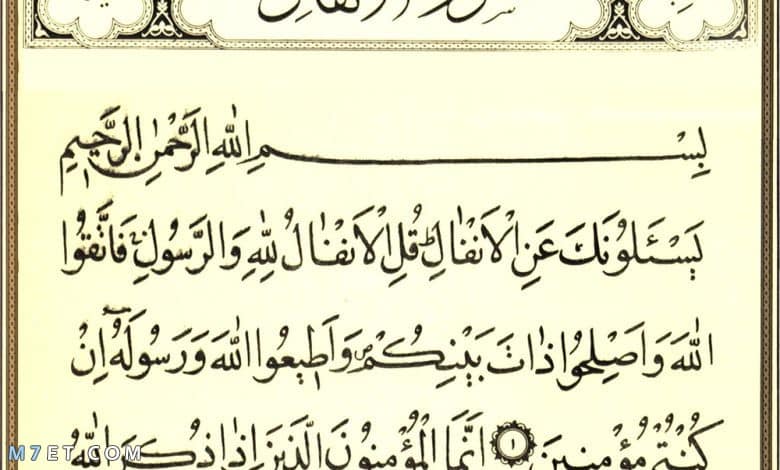 سورة الأنفال
بِسْمِ اللهِ الرَّحْمٰنِ الرَّحِيمِ
يَسْـَٔلُونَكَ عَنِ الْاَنْفَالِۜ قُلِ الْاَنْفَالُ لِلّٰهِ وَالرَّسُولِۚ فَاتَّقُوا
اللهَ وَاَصْلِحُوا ذَاتَ بَيْنِكُمْۖ وَاَطِيعُوا اللهَ وَرَسُولَهُٓ اِنْ
كُنْتُمْ مُؤْمِنِينَ ١ اِنَّمَا الْمُؤْمِنُونَ الَّذِينَ اِذَا ذُكِرَ اللهُ
M7ET.COM